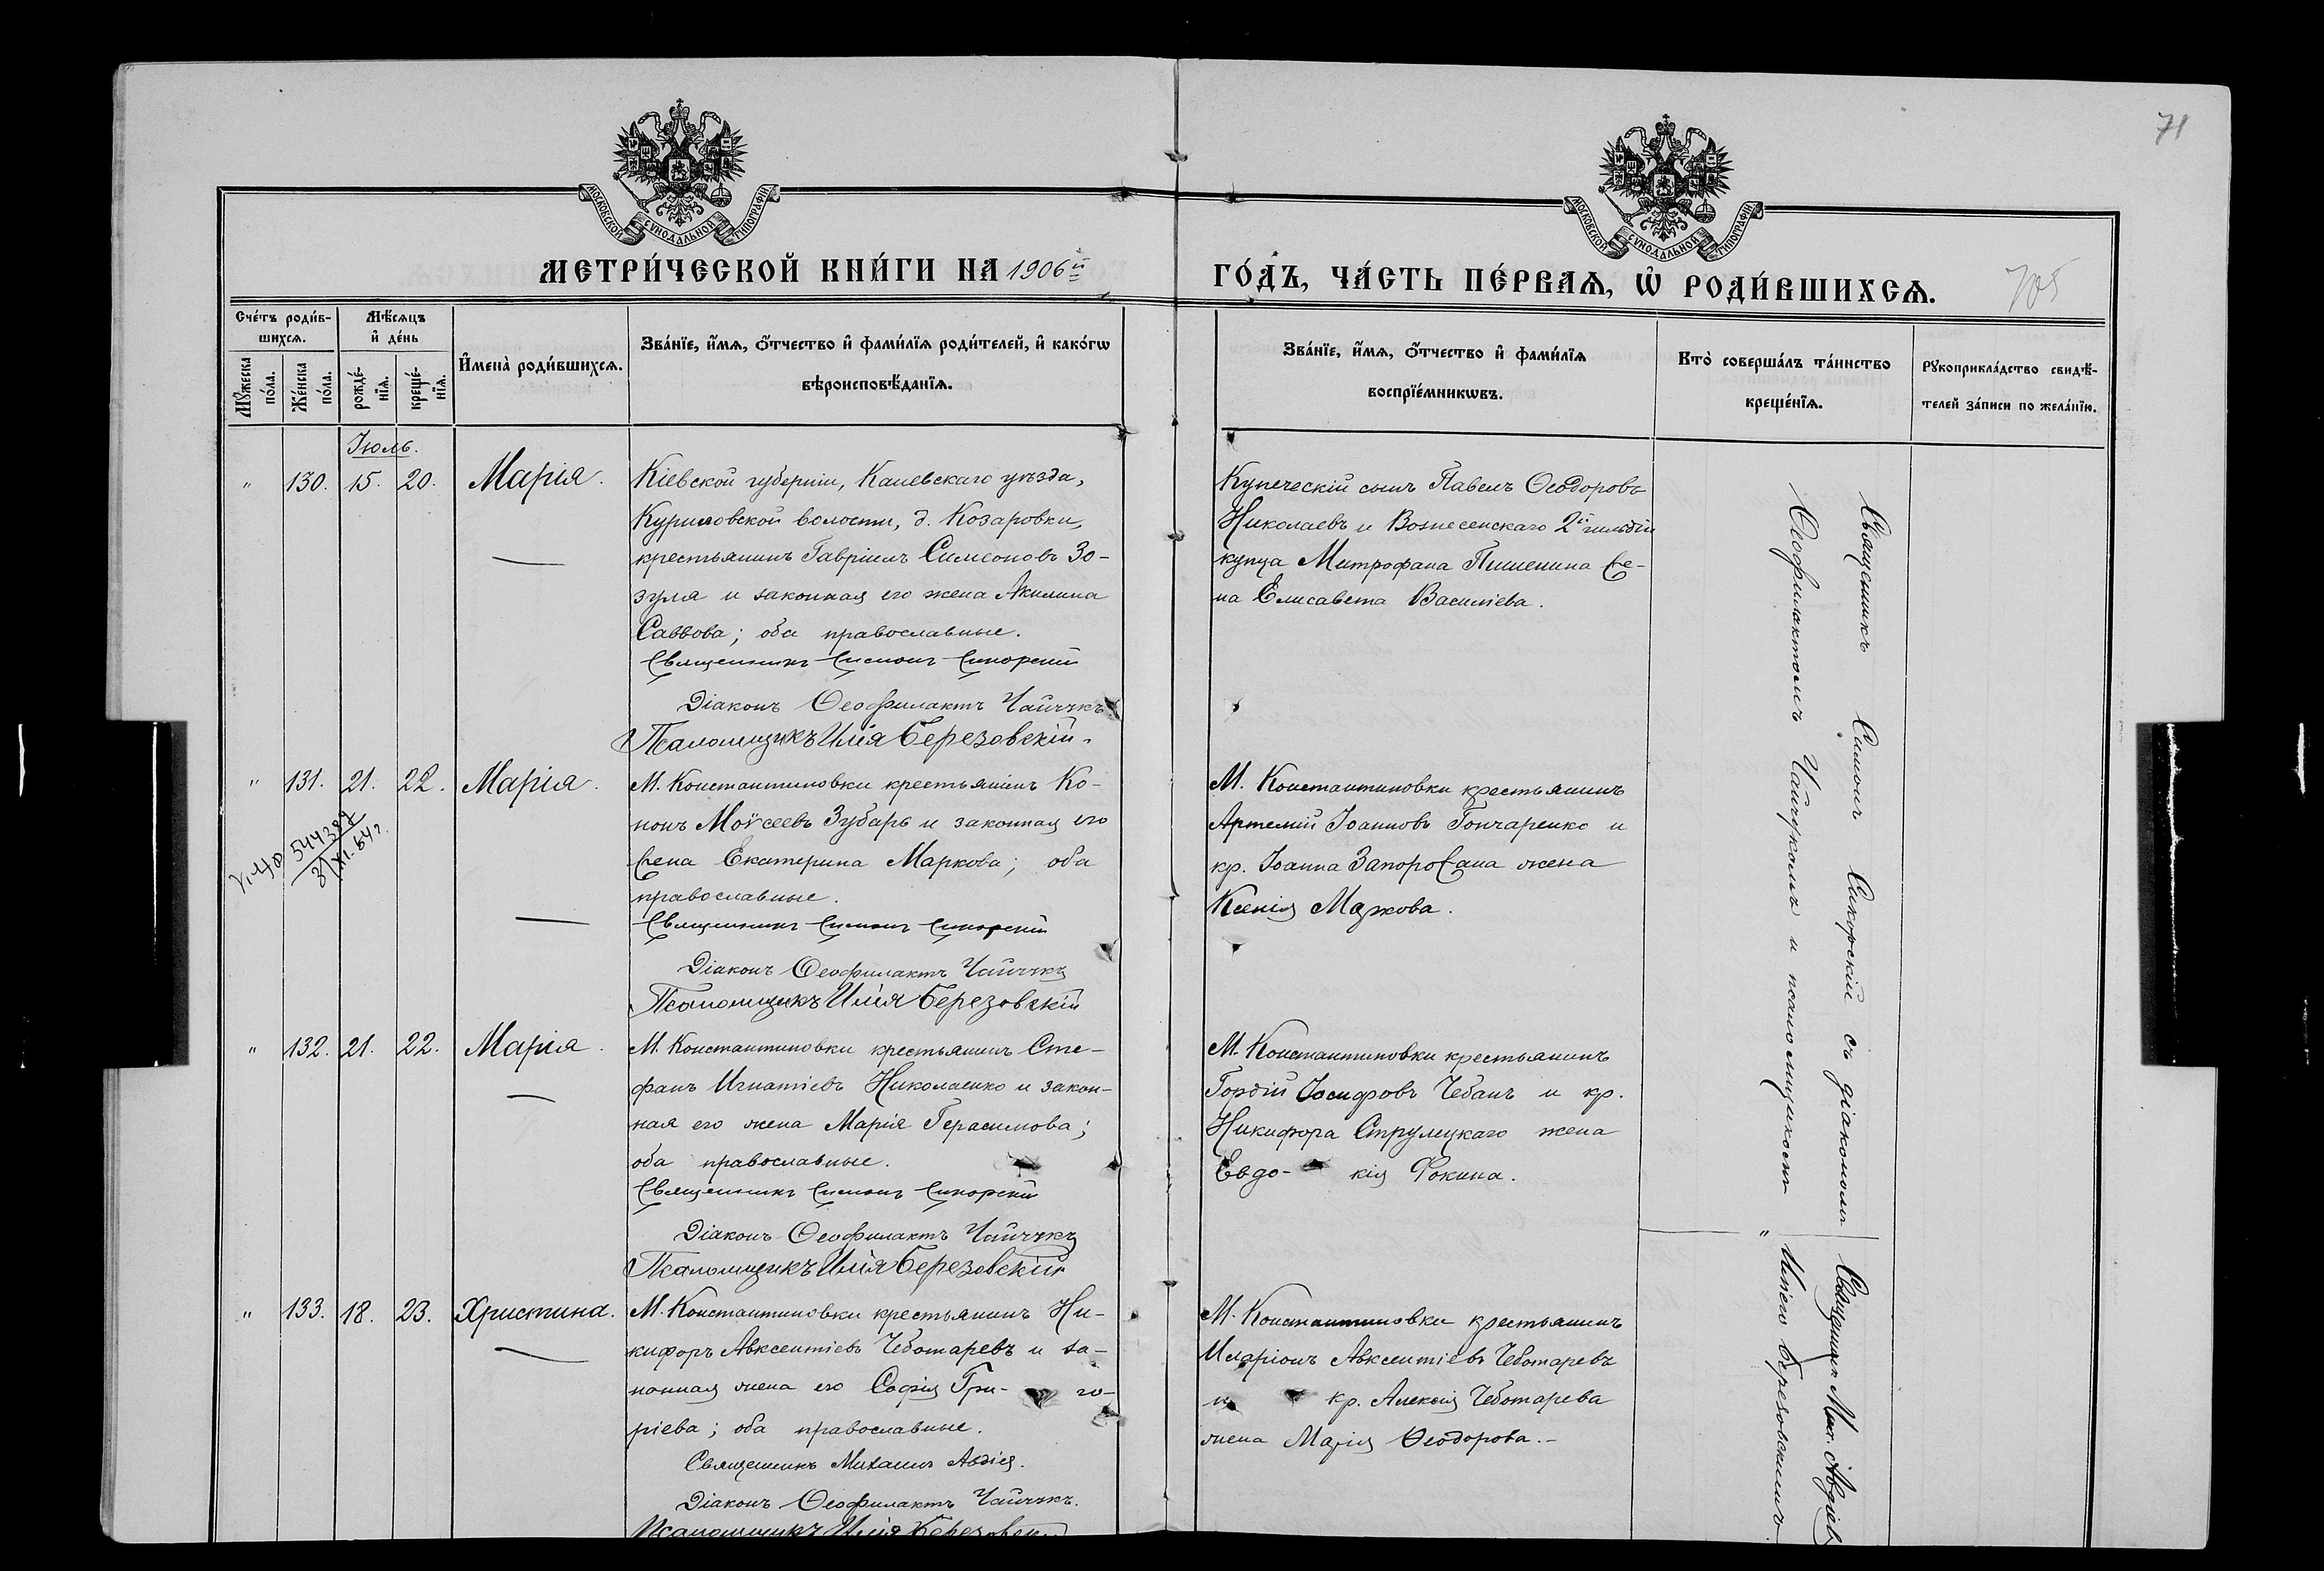 71
МОСКОВСКОЙ СѴНОДАЛЬНОЙ ТИПОГРАФІИ
МОСКОВСКОЙ СѴНОДАЛЬНОЙ ТИПОГРАФІИ
МЕТРИ́ЧЕСКОЙ КНИ́ГИ НА 1906й
ГО́ДЪ, ЧА́СТЬ ПЕ́РВАѦ, Ѡ҆ РОДИ́ВШИХСѦ.
705
Сче́тъ роди́в-
шихсѧ.
Мѣ́сѧцъ
и҆ де́нь
Мꙋ́жеска по́ла.
Же́нска по́ла.
рожде́-нїѧ.
креще́-нїѧ.
И҆мена̀ роди́вшихсѧ.
Зва́нїе, и҆́мѧ, ѻ҆́тчество и҆ фами́лїѧ роди́телей, и҆ како́гѡ
вѣроисповѣ́данїѧ.
Зва́нїе, и҆́мѧ, ѻ҆́тчество и҆ фами́лїѧ
воспрїе́мникѡвъ.
Кто̀ соверша́лъ та́инство
креще́нїѧ.
Рꙋкоприкла́дство свидѣ́-
телей за́писи по жела́нїю.
Іюль.
" 130. 15. 20. Марія.
Кіевской губерніи, Каневскаго уѣзда,
Куриловской волости, д. Козаровки,
крестьянинъ Гавріилъ Симеоновъ Зо-
зуля и законная его жена Акилина
Саввова; оба православные.
Священникъ Симонъ Сикорскій
Діаконъ Ѳеофилактъ Чайчукъ
Псаломщикъ Илія Березовскій.
Купеческій сынъ Павелъ Ѳеодоровъ
Николаевъ и Вознесенскаго 2й гильдіи
купца Митрофана Пшенина же-
на Елисавета Василіева.
" 131. 21. 22. Марія.
544387
М. Константиновки крестьянинъ Ко-
нонъ Моѵсеевъ Зубарь и законная его
жена Екатерина Маркова; оба
православные.
Священникъ Симонъ Сикорскій
Діаконъ Ѳеофилактъ Чайчукъ
Псаломщикъ Илія Березовскій
М. Константиновки крестьянинъ
Артемій Іоанновъ Гончаренко и
кр. Іоанна Запорожана жена
Ксенія Маркова.
" 132. 21. 22. Марія.
М. Константиновки крестьянинъ Сте-
фанъ Игнатіевъ Николаенко и закон-
ная его жена Марія Герасимова;
оба православные.
Священникъ Симонъ Сикорскій
Діаконъ Ѳеофилактъ Чайчукъ
Псаломщикъ Илія Березовскій
М. Константиновки крестьянинъ
Гордій Іосифовъ Чебанъ и кр.
Никифора Струлецкаго жена
Евдо- кія Фокина.
" 133. 18. 23. Христина.
М. Константиновки крестьянинъ Ни-
кифоръ Авксентіевъ Чеботаревъ и за-
конная жена его Софія Гри- го-
ріева; оба православные.
Священникъ Михаилъ Авдіев
Діаконъ Ѳеофилактъ Чайчукъ.
Псаломщикъ Илія Березовскій
М. Константиновки крестьянинъ
Иларіонъ Авксентіевъ Чеботаревъ
и кр. Алексія Чеботарева
жена Марія Ѳеодорова.-
Священникъ Симонъ Сикорскій съ діакономъ
Ѳеофилактомъ Чайчукомъ и псаломщикомъ
Священникъ Мих. Авдіев
" Иліею Березовскимъ